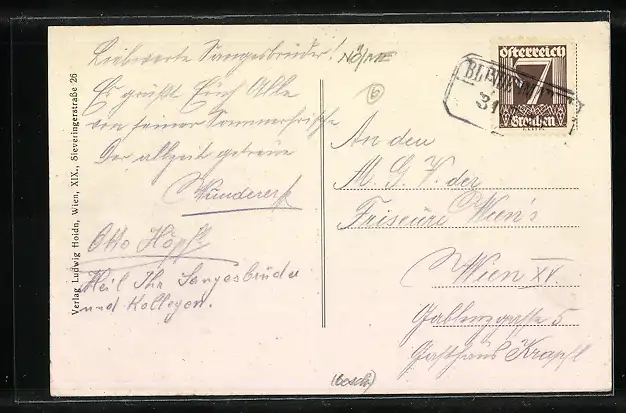 Liebwerte Sangesbrüder!
Es grüßt Euch Alle
von seiner Sommerfrische
Der allzeit getreue
Wunderer
Otto Höpfl
Heil Ihr Sangesbrüder
und Kollegen.
Verlag Ludwig Hoidn, Wien, XIX., Sieveringerstraße 26
6
Österreich
7
Groschen
31
An den
M. G. V. der
Friseure Wien's
Wien XV.
Gablenzgasse 5
Gasthaus Krapfl